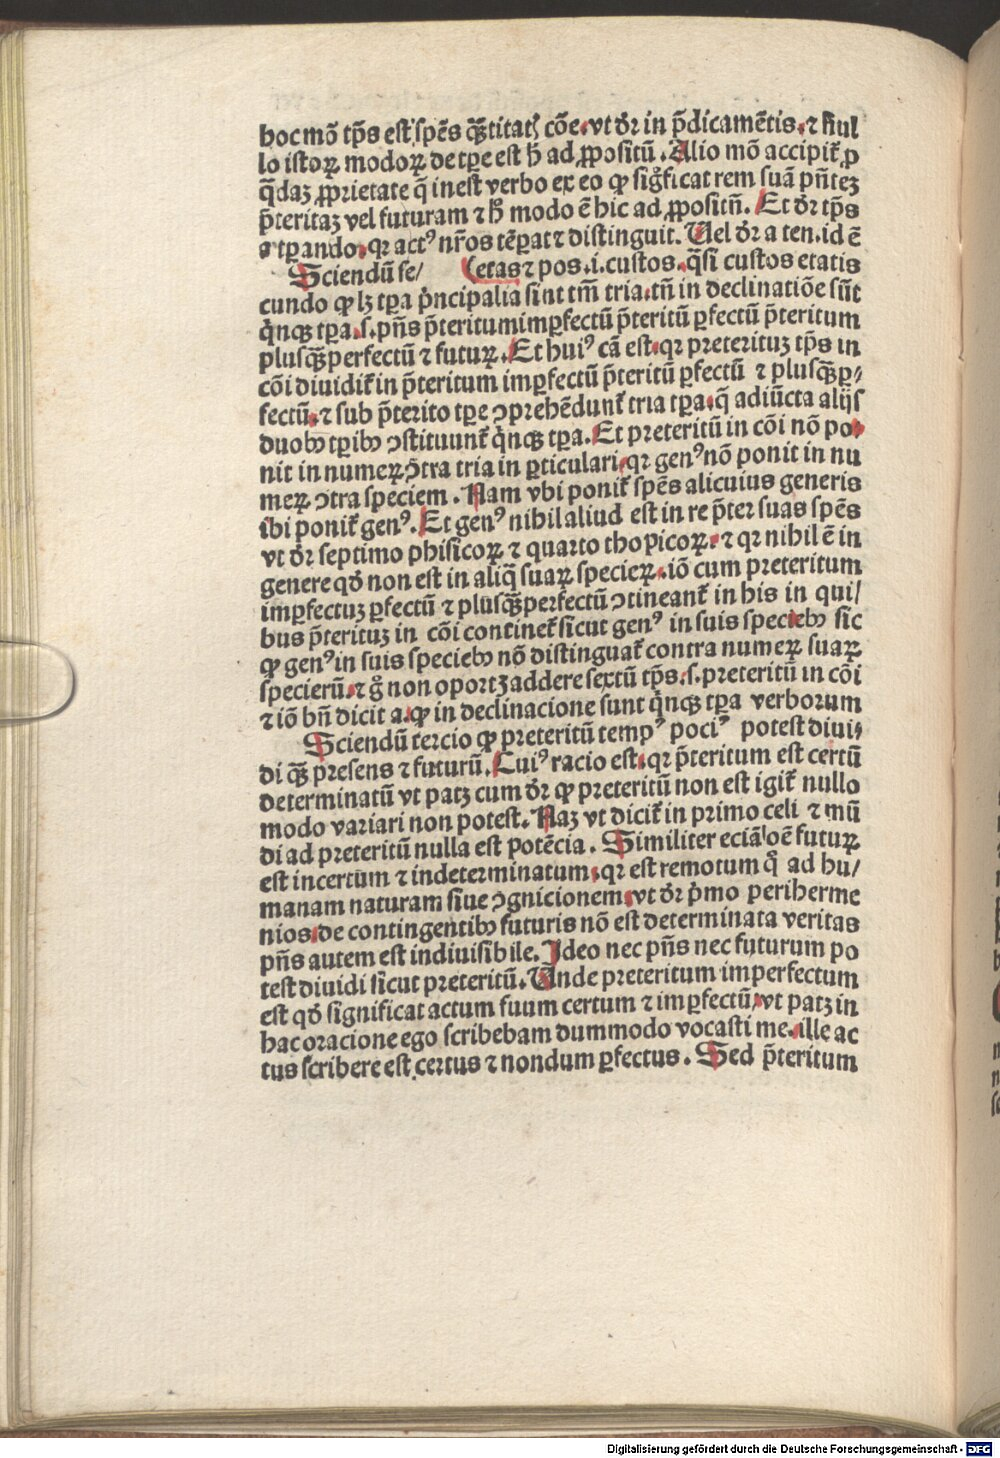 hoc mõ tp̃s est spẽs q̃ꝫtitat᷒ cõe. vt dr̃ in p̃dicamẽtis. ⁊ ñul
lo istoꝝ modoꝝ de tꝑe est h̃ ad ꝓpositũ. Alio mõ accipit᷑ ꝓ
q̃daꝫ ꝓprietate q̃ inest verbo ex eo ꝙ sig̃ficat rem suã pñteꝫ
p̃teritaꝫ vel futuram ⁊ h° modo ẽ hic ad ꝓpositũ. Et dr̃ tp̃s
a tꝑando. qꝛ actꝰ nr̃os tẽꝑat ⁊ distinguit. Uel dr̃ a ten. id ẽ
Sciendũ se/ (etas ⁊ pos .i. custos. q̃si custos etatis
cundo ꝙ lꝫ tꝑa p̃ncipalia sint tm̃ tria. tñ in declinatiõe sũt
q̃nqꝫ tꝑa .s. pñs p̃teritum imꝑfectũ p̃teritũ ꝑfectũ p̃teritum
plusq̃ꝫperfectũ ⁊ futuꝝ. Et huiꝰ cã est. qꝛ preterituꝫ tp̃s in
cõi diuidit᷑ in p̃teritum imꝑfectũ p̃teritũ ꝑfectũ ⁊ plusq̃ꝫꝑ/
fectũ. ⁊ sub p̃terito tꝑe ↄprehẽdunt᷑ tria tꝑa. q̃ adiũcta alijs
duobꝰ tꝑibꝰ ↄstituunt᷑ q̃nqꝫ tꝑa. Et preteritũ in cõi nõ po/
nit in numeꝝ ↄtra tria in ꝑticulari. qꝛ genꝰ nõ ponit in nu
meꝝ ↄtra speciem. Nam vbi ponit᷑ spẽs alicuius generis
ibi ponit᷑ genꝰ. Et genꝰ nihil aliud est in re p̃ter suas spẽs
vt dr̃ septimo phisicoꝝ ⁊ quarto thopicoꝝ. ⁊ qꝛ nihil ẽ in
genere qd̃ non est in aliq̃ suaꝝ specieꝝ. iõ cum preteritum
imꝑfectuꝫ ꝑfectũ ⁊ plusq̃ꝫperfectũ ↄtineant᷑ in his in qui/
bus p̃terituꝫ in cõi continet᷑ sicut genꝰ in suis speciebꝰ sic
ꝙ genꝰ in suis speciebꝰ nõ distinguat᷑ contra numeꝝ suaꝝ
specierũ. ⁊ g° non oportꝫ addere sextũ tp̃s .s. preteritũ in cõi
⁊ iõ bñ dicit a. ꝙ in declinacione sunt q̃nqꝫ tꝑa verborum
Sciendũ tercio ꝙ preteritũ tempꝰ pociꝰ potest diui/
di q̃ꝫ presens ⁊ futurũ. Cuiꝰ racio est. qꝛ p̃teritum est certũ
determinatũ vt patꝫ cum dr̃ ꝙ preteritũ non est igit᷑ nullo
modo variari non potest. Naꝫ vt dicit᷑ in primo celi ⁊ mũ
di ad preteritũ nulla est potẽcia. Similiter eciã oẽ futuꝝ
est incertum ⁊ indeterminatum. qꝛ est remotum q° ad hu/
manam naturam siue ↄgnicionem. vt dr̃ p̃mo periherme
nios. de contingentibꝰ futuris nõ est determinata veritas
pñs autem est indiuisibile. Ideo nec pñs nec futurum po
test diuidi sicut preteritũ. Unde preteritum imperfectum
est qd̃ significat actum fuum certum ⁊ imꝑfectũ. vt patꝫ in
hac oracione ego scribebam dummodo vocasti me. ille ac
tus scribere est certus ⁊ nondum ꝑfectus. Sed p̃teritum
Digitalisierung gefördert durch die Deutsche Forschungsgemeinschaft - DFG